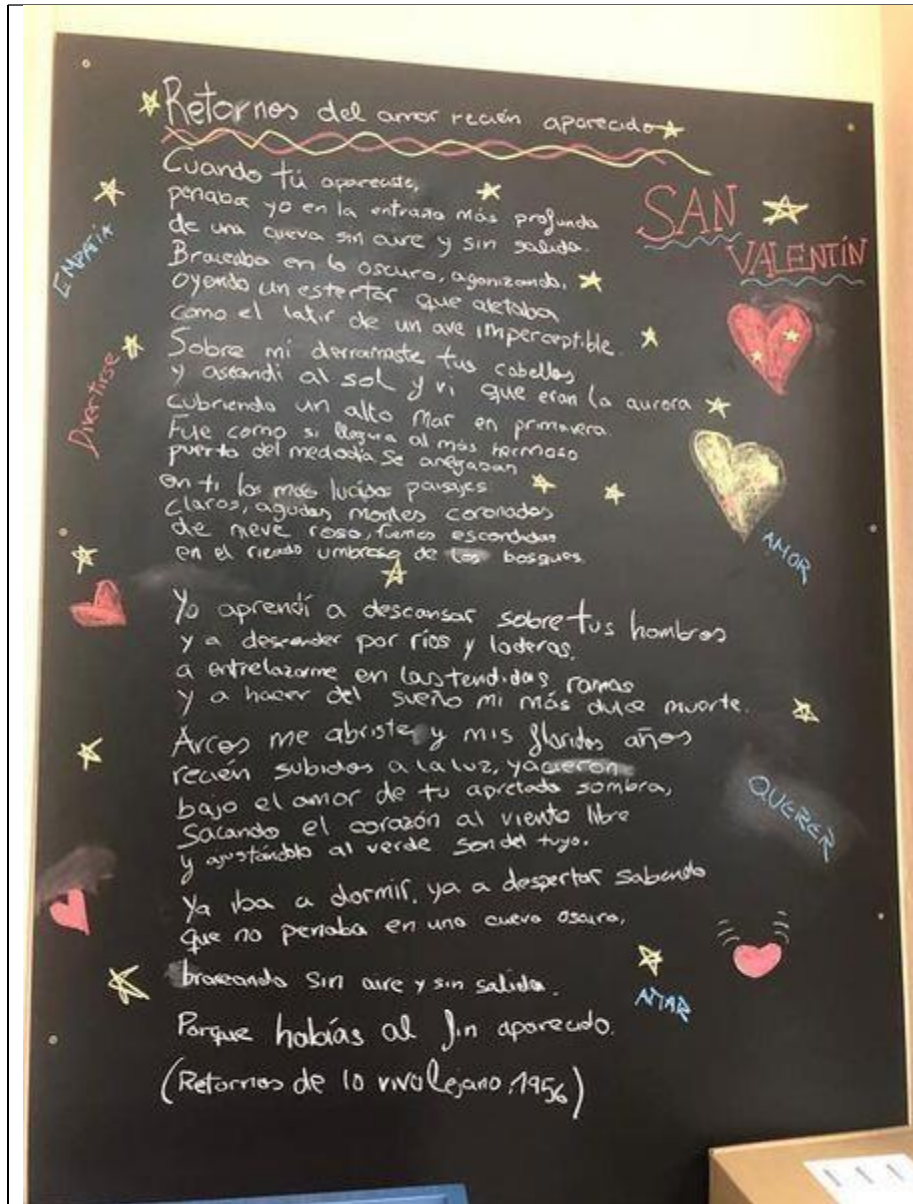 Retornos del amor recién aparecido
Cuando tú apareciste,
penaba yo en la entraña más profunda
de una cueva sin aire y sin salida.
Braceaba en lo oscuro, agonizando,
oyendo un estertor que aleteaba
como el latir de un ave imperceptible.
Sobre mi derramaste tus cabellos
y ascendí al sol y vi que eran la aurora
cubriendo un alto mar en primavera.
Fue como si llegara al más hermoso
puerto del mediodía. Se anegaban
en ti los más lucidos paisajes:
Claros, agudos montes coronados
de nieve rosa, fuentes escondidas
en el rizado umbroso de los bosques.
Yo aprendí a descansar sobre tus hombros
y a descender por ríos y laderas,
a entrelazarme en las tendidas ramas
y a hacer del sueño mi más dulce muerte.
Arcos me abriste y mis floridos años
recién subidos a la luz, yacieron
bajo el amor de tu apretada sombra,
Sacando el corazón al viento libre
y ajustándolo al verde son del tuyo.
Ya iba a dormir, ya a despertar sabiendo
que no penaba en una cueva oscura,
braceando sin aire y sin salida.
Porque habías al fin aparecido.
(Retornos de lo vivo lejano, 1956)
SAN
VALENTÍN
EMPATÍA
Divertirse
AMOR
QUERER
AMAR